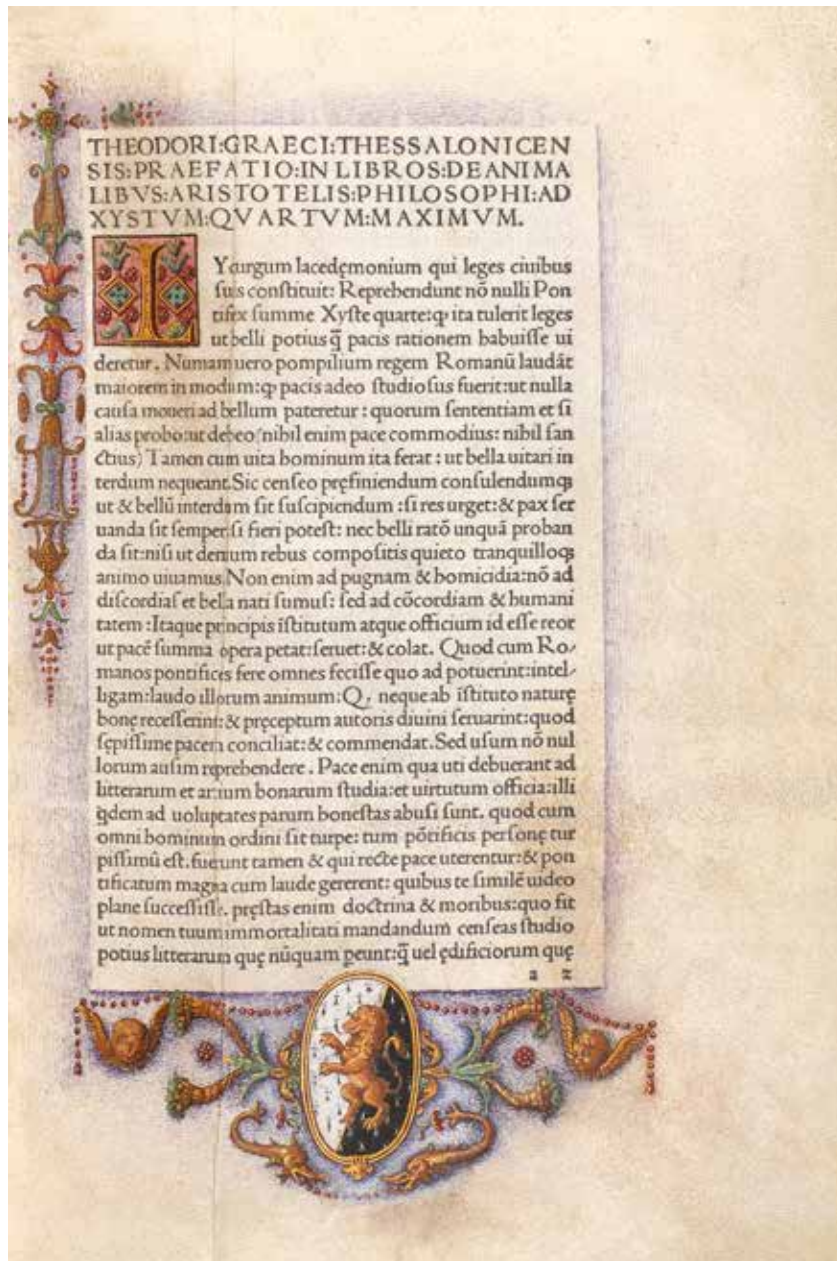 THEODORI:GRAECI:THESSALONICEN
SIS:PRAEFATIO:IN LIBROS:DE ANIMA
LIBVS:ARISTOTELIS:PHILOSOPHI:AD
XYSTVM:QVARTVM:MAXIMVM.
LYcurgum lacedęmonium qui leges ciuibus
suis constituit: Reprehendunt nõ nulli Pon
tifex summe Xyste quarte:ꝙ ita tulerit leges
ut belli potius q̃ pacis rationem habuisse ui
deretur. Numam uero pompilium regem Romanũ laudãt
maiorem in modum:ꝙ pacis adeo studiosus fuerit:ut nulla
causa moueri ad bellum pateretur: quorum sententiam et si
alias probo:ut debeo(nihil enim pace commodius: nihil san
ctius) Tamen cum uita hominum ita ferat: ut bella uitari in
terdum nequeant.Sic censeo pręfiniendum consulendumqȝ
ut & bellũ interdum sit suscipiendum :si res urget:& pax ser
uanda sit semper:si fieri potest: nec belli ratõ unquã proban
da sit:nisi ut demum rebus compositis quieto tranquilloqȝ
animo uiuamus.Non enim ad pugnam & homicidia:nõ ad
discordias et bella nati sumus: sed ad cõcordiam & humani
tatem :Itaque principis ĩstitutum atque officium id esse reor
ut pacẽ summa opera petat:seruet:& colat. Quod cum Ro/
manos pontifices fere omnes fecisse quo ad potuerint:intel/
ligam:laudo illorum animum:Q, neque ab ĩstituto naturę
bonę recesserint:& pręceptum autoris diuini seruarint:quod
sępissime pacem conciliat:& commendat.Sed usum nõ nul
lorum ausim reprehendere. Pace enim qua uti debuerant ad
litterarum et artium bonarum studia:et uirtutum officia:illi
q̇dem ad uoluptates parum honestas abusi sunt. quod cum
omni hominum ordini sit turpe: tum põtificis personę tur
pissimũ est. fuerunt tamen & qui recte pace uterentur:& pon
tificatum magna cum laude gererent: quibus te similẽ uideo
plane successisse. pręstas enim doctrina & moribus:quo fit
ut nomen tuum immortalitati mandandum censeas studio
potius litterarum quę nũquam peunt:q̃ uel ędificiorum quę
a 2